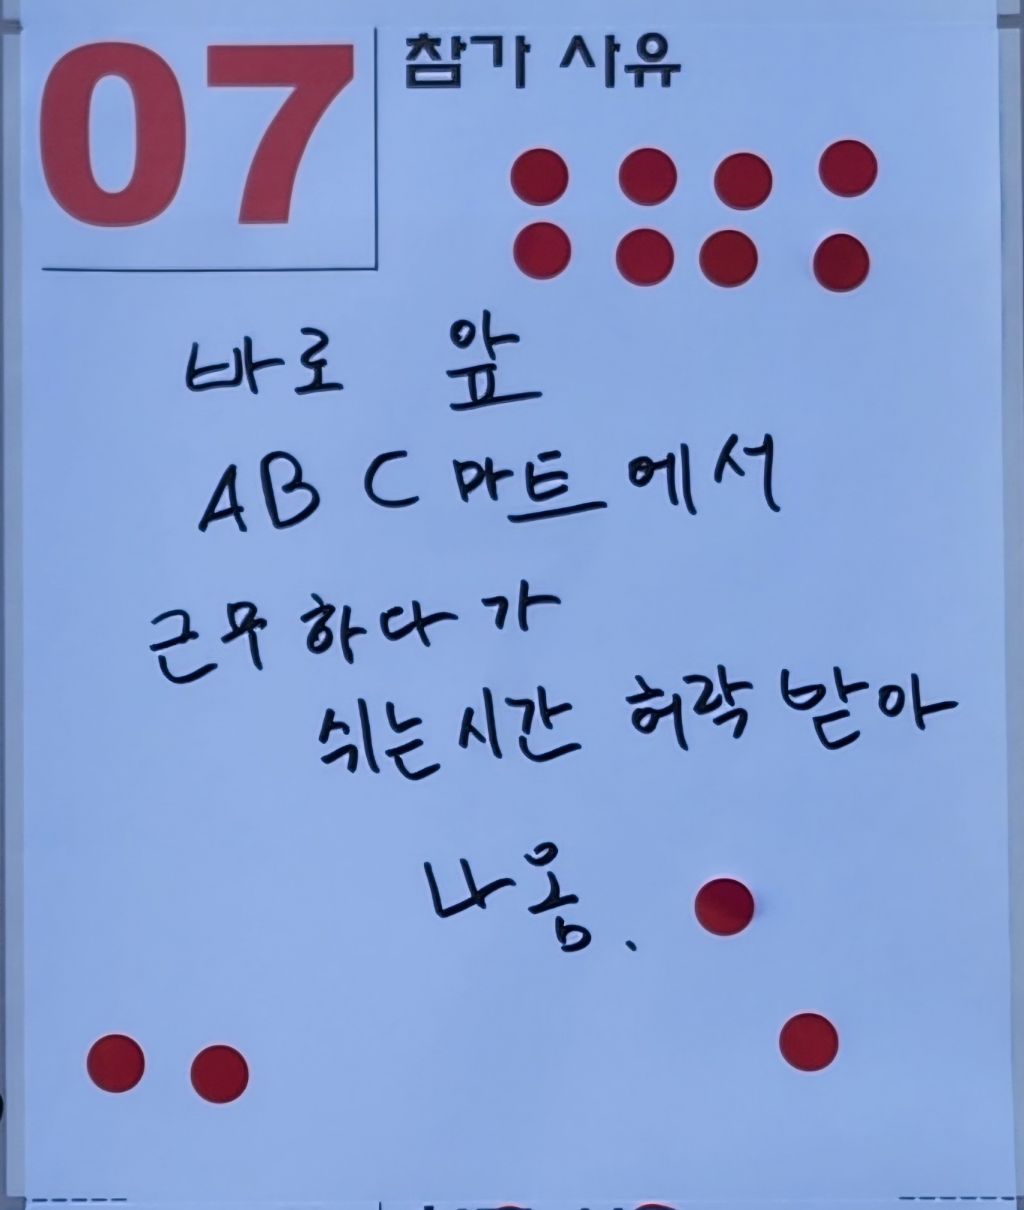 07
참가 사유
바로 앞
ABC 마트에서
근무하다가
쉬는시간 허락 받아
나옴.